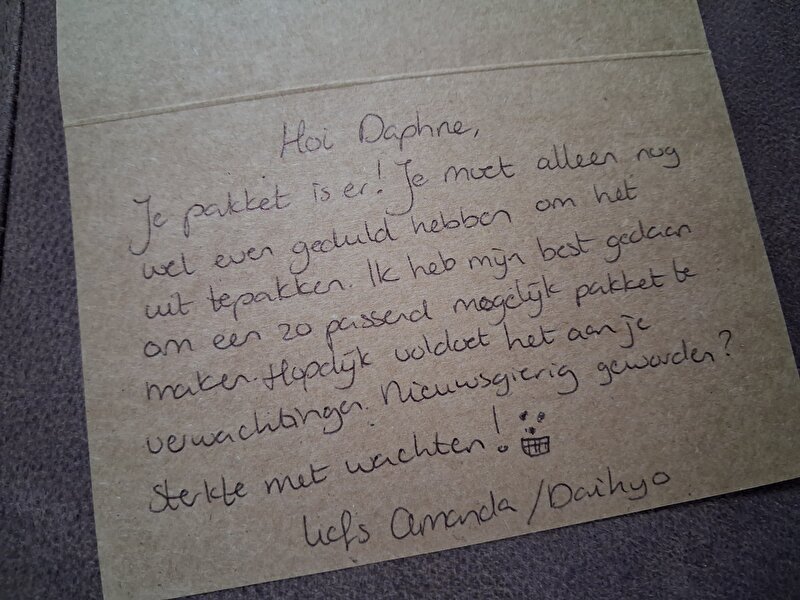 Hoi Daphne,
Je pakket is er! Je moet alleen nog
wel even geduld hebben om het
uit tepakken. Ik heb mijn best gedaan
om een zo passend mogelijk pakket te
maken. Hopelijk voldoet het aan je
verwachtingen. Nieuwsgierig geworden?
Sterkte met wachten!
liefs Amanda / Daihyo